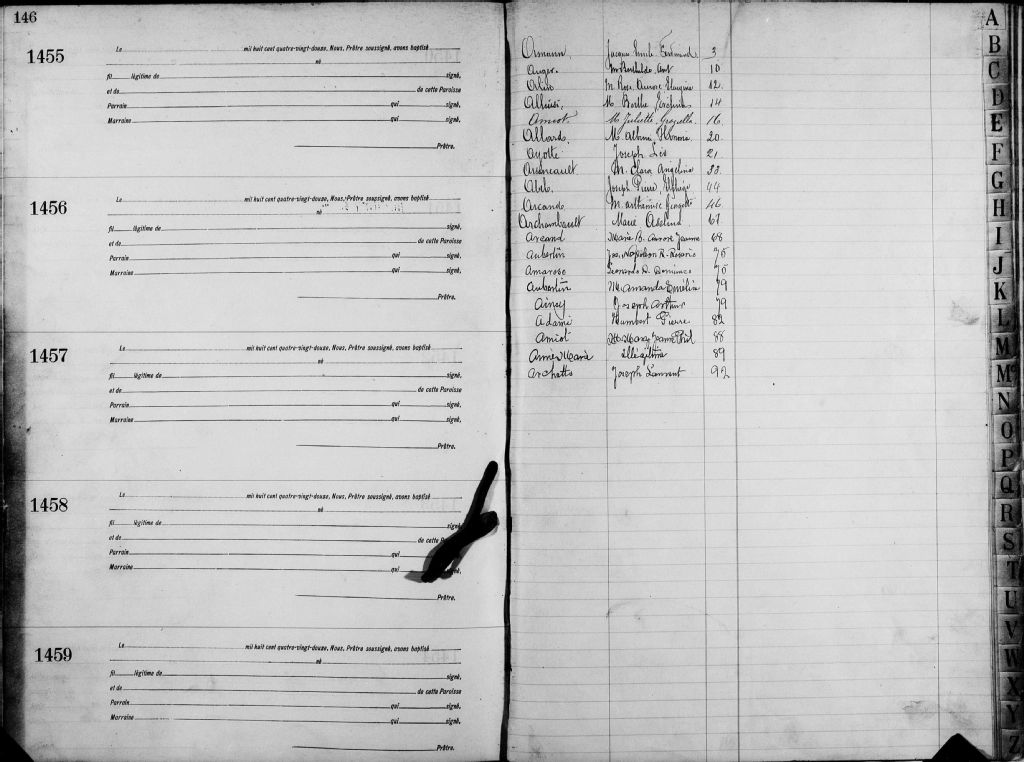 146
1455
Le mil huit cent quatre-vingt-douze, Nous, Prêtre soussigné, avons baptisé
né
fil légitime de signé,
et de de cette Paroisse
Parrain qui signé,
Marraine qui signé,
Prêtre.
1456
Le mil huit cent quatre-vingt-douze, Nous, Prêtre soussigné, avons baptisé
né
fil légitime de signé,
et de de cette Paroisse
Parrain qui signé,
Marraine qui signé,
Prêtre.
1457
Le mil huit cent quatre-vingt-douze, Nous, Prêtre soussigné, avons baptisé
né
fil légitime de signé,
et de de cette Paroisse
Parrain qui signé,
Marraine qui signé,
Prêtre.
1458
Le mil huit cent quatre-vingt-douze, Nous, Prêtre soussigné, avons baptisé
né
fil légitime de signé,
et de de cette Paroisse
Parrain qui
Marraine qui
Prêtre.
1459
Le mil huit cent quatre-vingt-douze, Nous, Prêtre soussigné, avons baptisé
né
fil légitime de signé,
et de de cette Paroisse
Parrain qui signé,
Marraine qui signé,
Prêtre.
Jacques Emile Ferdinand 3
Auger. 10
M. Rose Aurore 12
M. Berthe 14
Amiot M. Juliette 16
Allard. M. Albina 20
Ayotte Joseph 21
Arseneault M. Clara Angelina 33
Joseph Pierre 44
Arcand 46
Archambault Marie 67
Arcand Marie B. Aurore Jeanne 68
Aubertin Jos. Napoleon R. 75
Amaroso Leonardo D. Domenico 75
Aubertin M. Amanda Emélia 79
Ainey Joseph Arthur 79
Adami Humbert Pierre 82
Amiot 88
Anne Marie illégitime 89
Joseph Laurent 92
A
B
C
D
E
F
G
H
I
J
K
L
M
Mc
N
O
P
Q
R
S
T
U
V
W
X
Y
Z